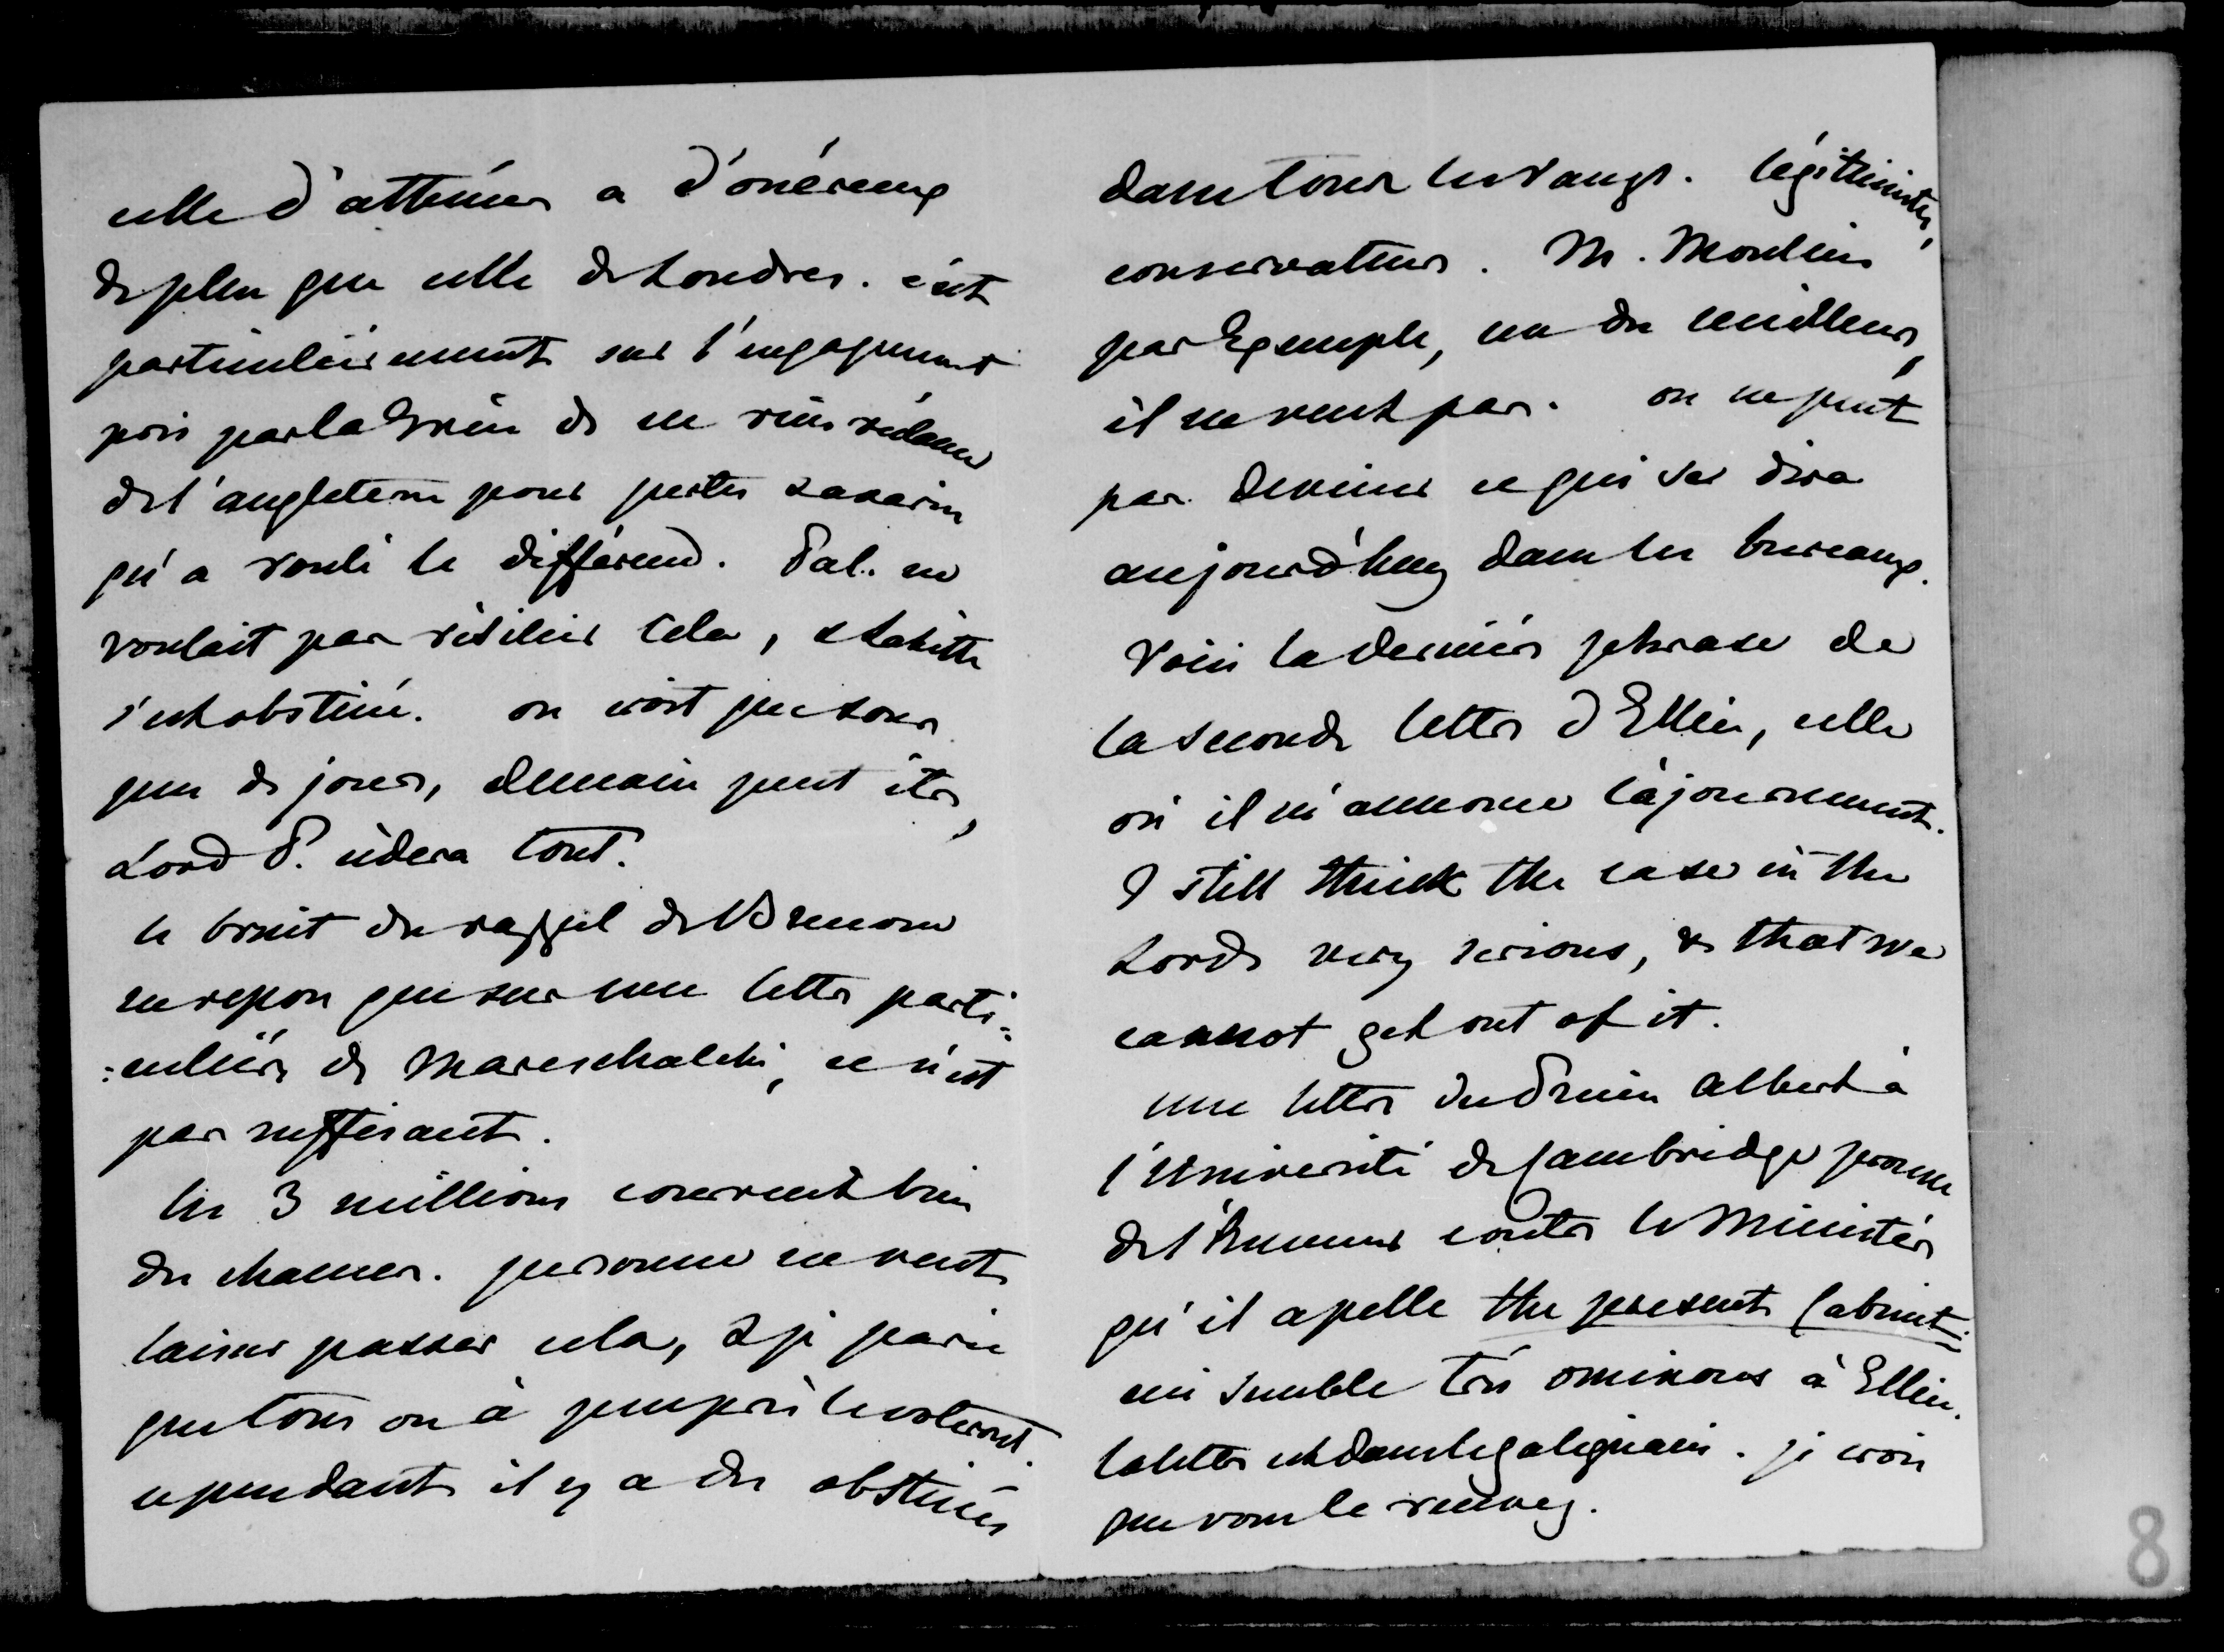 celle d'athènes a d'onéreux
de plus que celle de Londres. c'est
particulièrement sur l'engagement
pris par la Grèce de ne rien réclamer
de l'angleterre pour pertes &
qu'a roulé le différend. Pal. ne
voulait pas résilier cela, & Lahitte
s'est obstiné. on croit que sous
peu de jours, demain peut être,
Lord P. cèdera tout.
le bruit du rappel de Brunow
ne repose que sur une lettre parti=
=culière de Mareschalchi, ce n'est
pas suffisant.
les 3 millions courrent bien
des chances. personne ne veut
laisser passer cela, & je parie
que tous ou à peu près le voteront.
cependant il y a des obstinés
dans tous les rangs. légitimistes,
conservateurs. M. Moulin
par Exemple, un des meilleurs,
il ne veut pas. on ne peut
pas deviner ce qui se dira
aujourd'huy dans les bureaux.
Voici la dernière phrase de
la seconde lettre d'Ellice, celle
où il m'annonce l'ajournement.
I still think the case in the
Lords very serious, & that we
cannot get out of it.
une lettre du Prince Albert à
l'Université de Cambridge prouve
de l'humeur contre le Ministère
qu'il apelle the present Cabinet.
ceci semble très ominous à Ellice.
la lettre est dans le galignani. je crois
que vous le recevez.